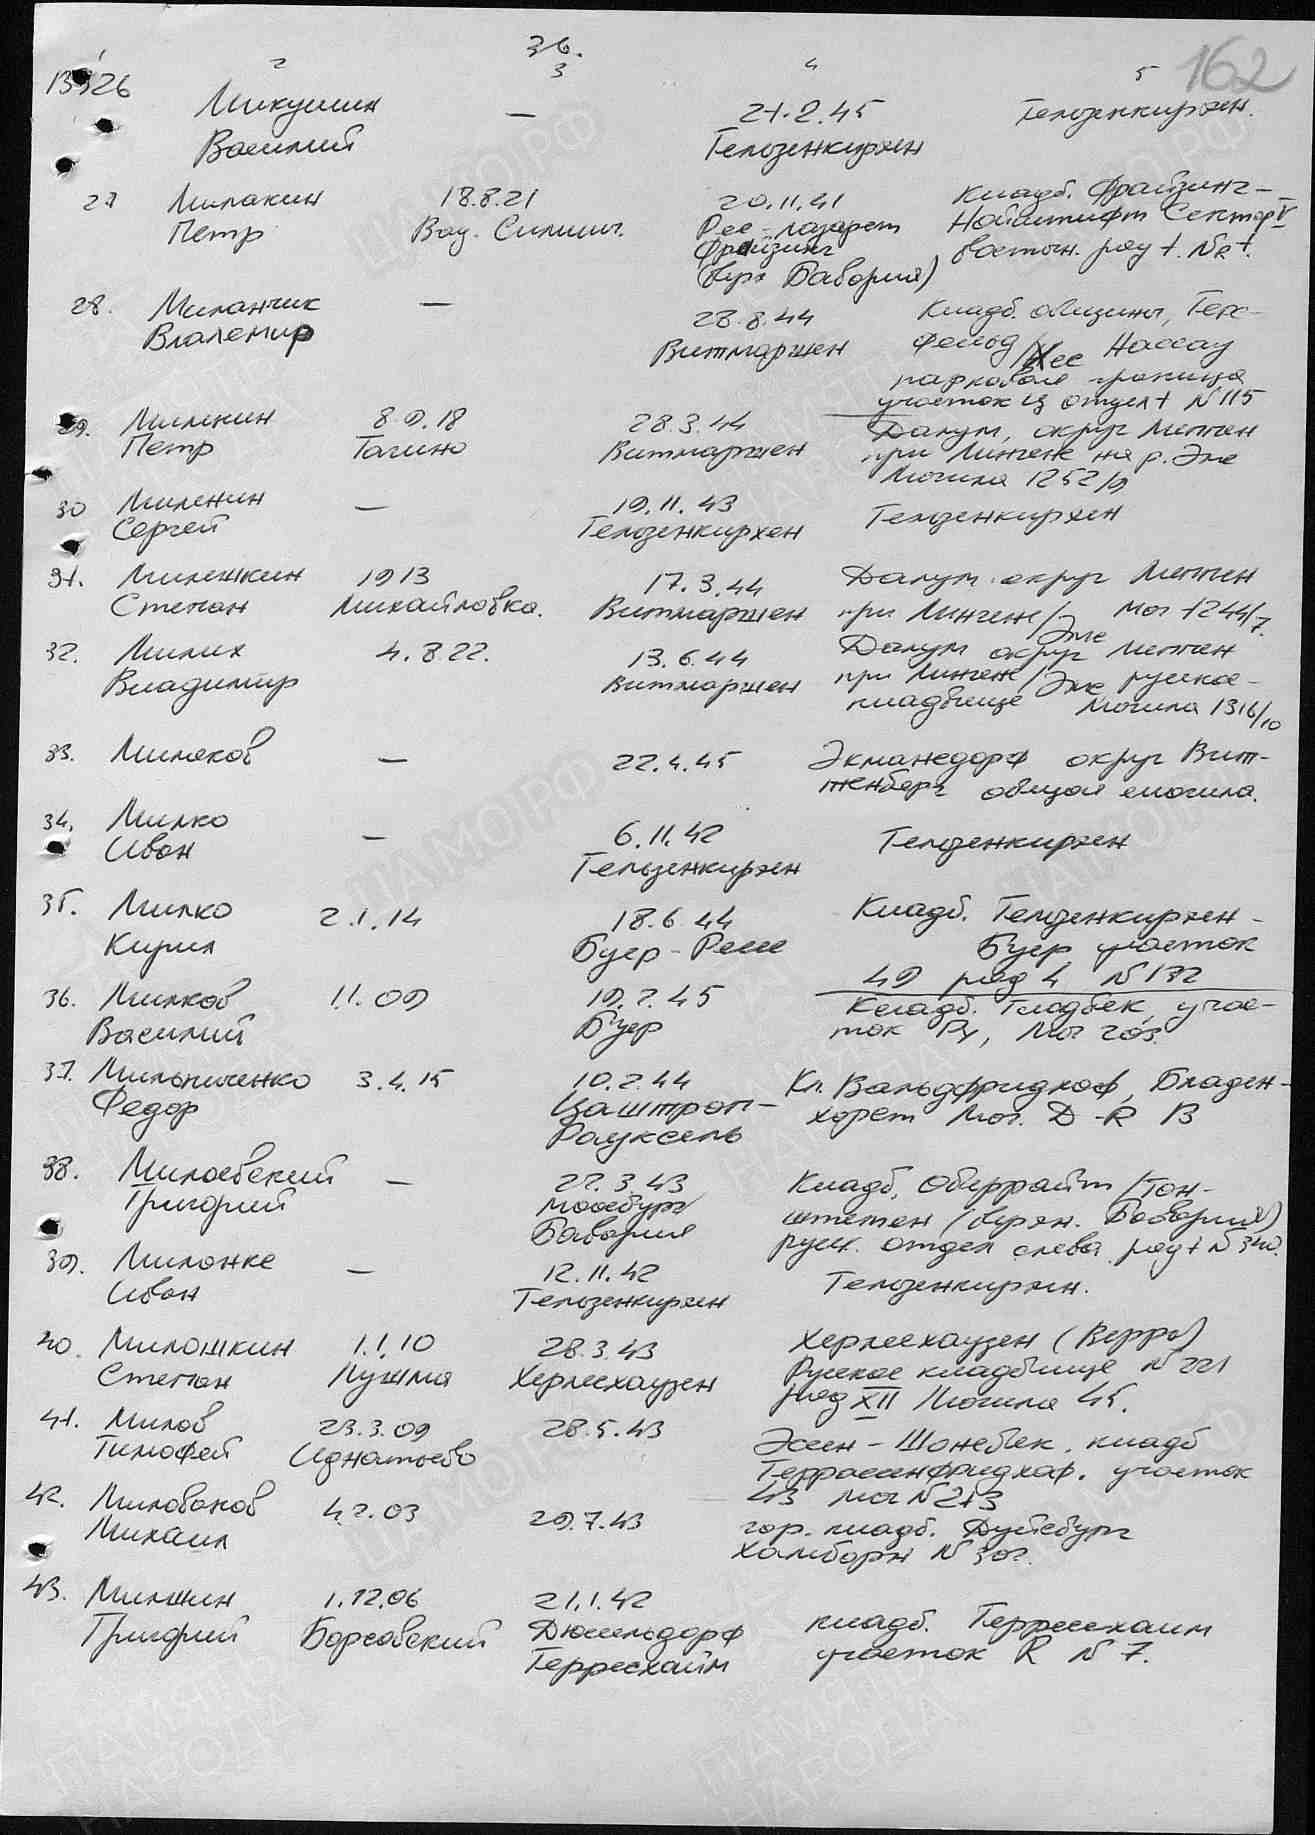 36.
162
2 3 4 5
13326 Микушин — 21.2.45 Гельзенкирхен.
Василий Гельзенкирхен
27 Милакин 18.8.21 20.11.41 Кладб. Фрайзинг-
Петр Рес-лазарет Нойштифт Сектор V
Фрайзинг восточн. ряд 1. № 1.
(верх Бавария)
28. Миланчик — 28.8.44 Кладб. общины, Герс-
Владемир Витмаршен фельд Нассау
парковая граница
участок из отдел 1 № 115
29. Милекин 8.9.18 28.3.44 Далум, округ Меппен
Петр Тагино Витмаршен при Линген на р. Эмс
Могила 1252/9
30 Миленин — 19.11.43 Гельзенкирхен
Сергей Гельзенкирхен
31. Милешкин 1913 17.3.44 Далум округ Меппен
Степан Михайловка. Витмаршен при Линген/Эмс мог 1244/7.
32. Милих 4.8.22. 13.6.44 Далум округ Меппен
Владимир Витмаршен при Линген/Эмс русское
кладбище Могила 1316/10
33. Миляков — 22.4.45 округ Вит-
тенберг общая могила.
34. Милко — 6.11.42 Гельзенкирхен
Иван Гельзенкирхен
35. Милко 2.1.14 18.6.44 Кладб. Гельзенкирхен-
Кирил Буер-Ресе Буер участок
49 ряд 4 № 172
36. Милков 1.1.09 19.2.45 Кладб. Гладбек, учас-
Василий Буер ток
37. Мильниченко 3.4.15 10.2.44 Кл. Вальдфридхоф, Бладен-
Федор Рауксель хорст Мог. D-R В
38. Милоевский — 27.3.43 Кладб, Оберрайт/Тон-
Григорий Моосбург штетен (верхн. Бавария)
Бавария русск. отдел слева ряд 1 № 340.
39. Милонке — 12.11.42 Гельзенкирхен.
Иван Гельзенкирхен
40. Милошкин 1.1.10 28.3.43 Херлесхаузен (Верра)
Степан Лушля Херлесхаузен Русское кладбище № 221
ряд XII Могила 45.
41. Милов 23.3.09 28.5.43 Эссен-Шонебек. кладб
Тимофей Террассенфридхоф. участок
43 мог № 213
42. Милованов 4.2.03 29.7.43 гор. кладб. Дуйсбург
Михаил Хамборн №
43. Милшин 1.12.06 21.1.42 кладб. Герресхаим
Григорий Борсовский Дюссельдорф участок R № 7.
Герресхайм
ПАМЯТЬ НАРОДА
ЦАМО.РФ